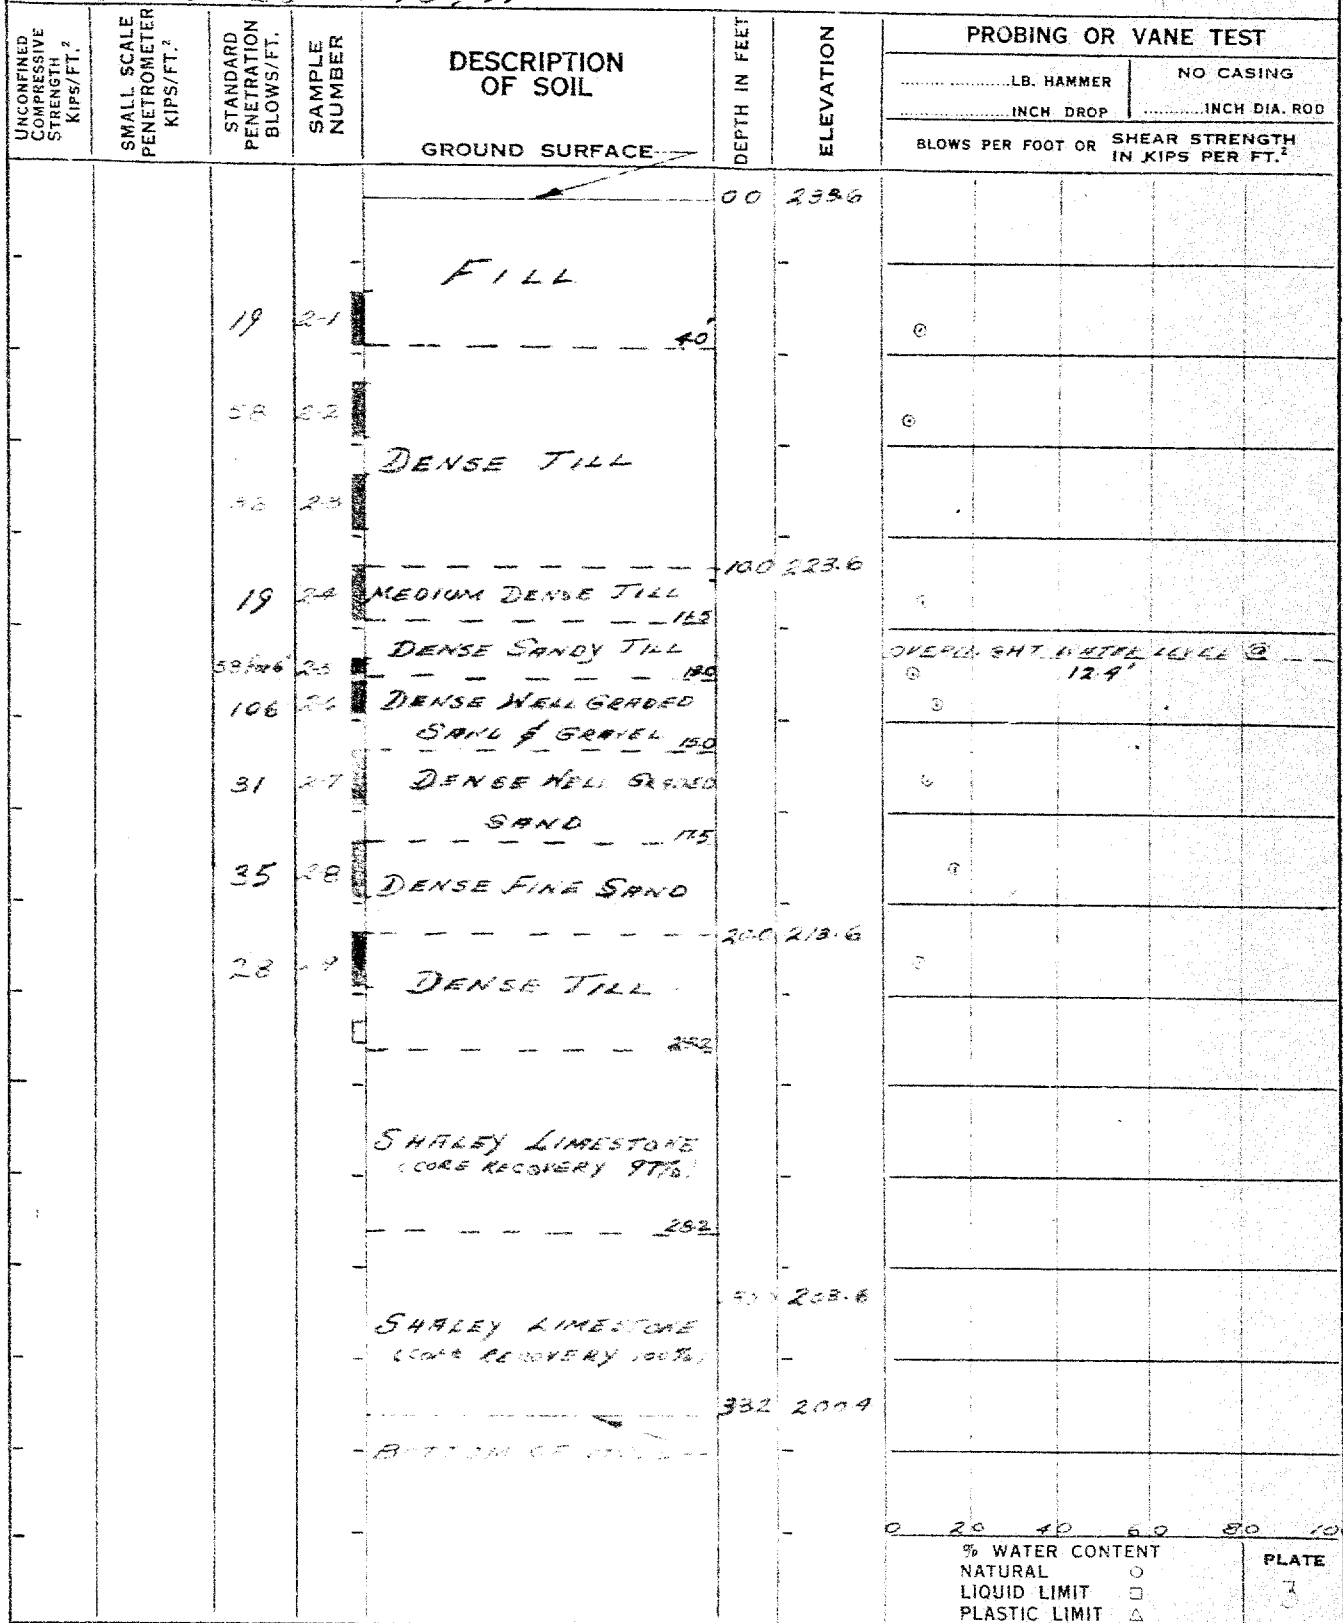 UNCONFINED COMPRESSIVE STRENGTH KIPS/FT.²
SMALL SCALE PENETROMETER KIPS/FT.²
STANDARD PENETRATION BLOWS/FT.
SAMPLE NUMBER
DESCRIPTION OF SOIL
GROUND SURFACE
DEPTH IN FEET
ELEVATION
PROBING OR VANE TEST
LB. HAMMER
NO CASING
INCH DROP
INCH DIA. ROD
BLOWS PER FOOT OR SHEAR STRENGTH IN KIPS PER FT.²
0.0
FILL
19 2-1
4.0'
58 2-2
DENSE TILL
2-3
10.0 223.6
19 2-4 MEDIUM DENSE TILL
11.5
DENSE SANDY TILL
OVERNIGHT WATER LEVEL @
12.9'
106 DENSE WELL GRADED
SAND & GRAVEL 15.0
31 2-7 DENSE WELL GRADED
SAND
17.5
35 2-8 DENSE FINE SAND
20.0 213.6
28
DENSE TILL
SHALEY LIMESTONE
(CORE RECOVERY 97%)
28.2
203.6
SHALEY LIMESTONE
(CORE RECOVERY 100%)
33.2 200.4
BOTTOM OF
0 20 40 60 80
% WATER CONTENT
NATURAL ○
LIQUID LIMIT □
PLASTIC LIMIT △
PLATE
3